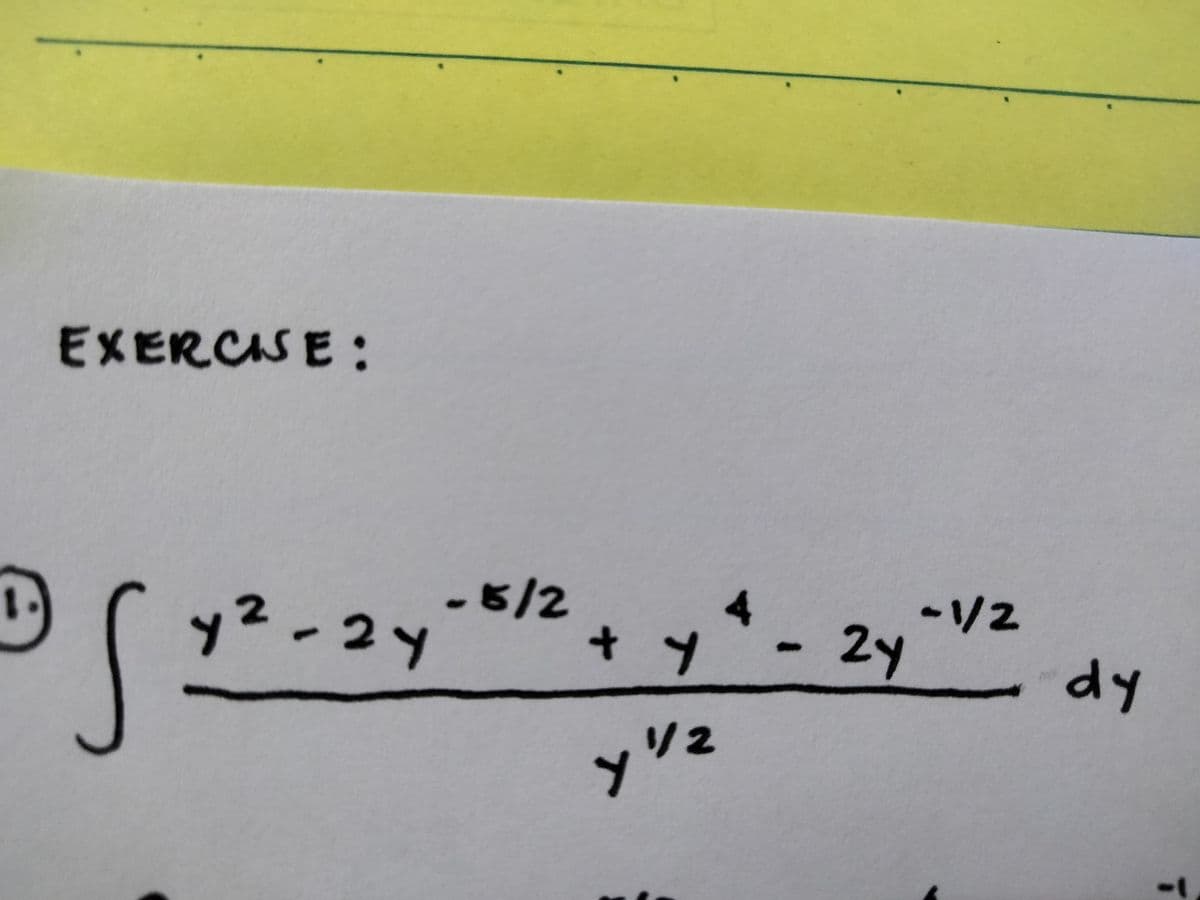 EXERCISE :
1. ∫ y² - 2y^(-5/2) + y⁴ - 2y^(-1/2) dy
y^(1/2)
-1